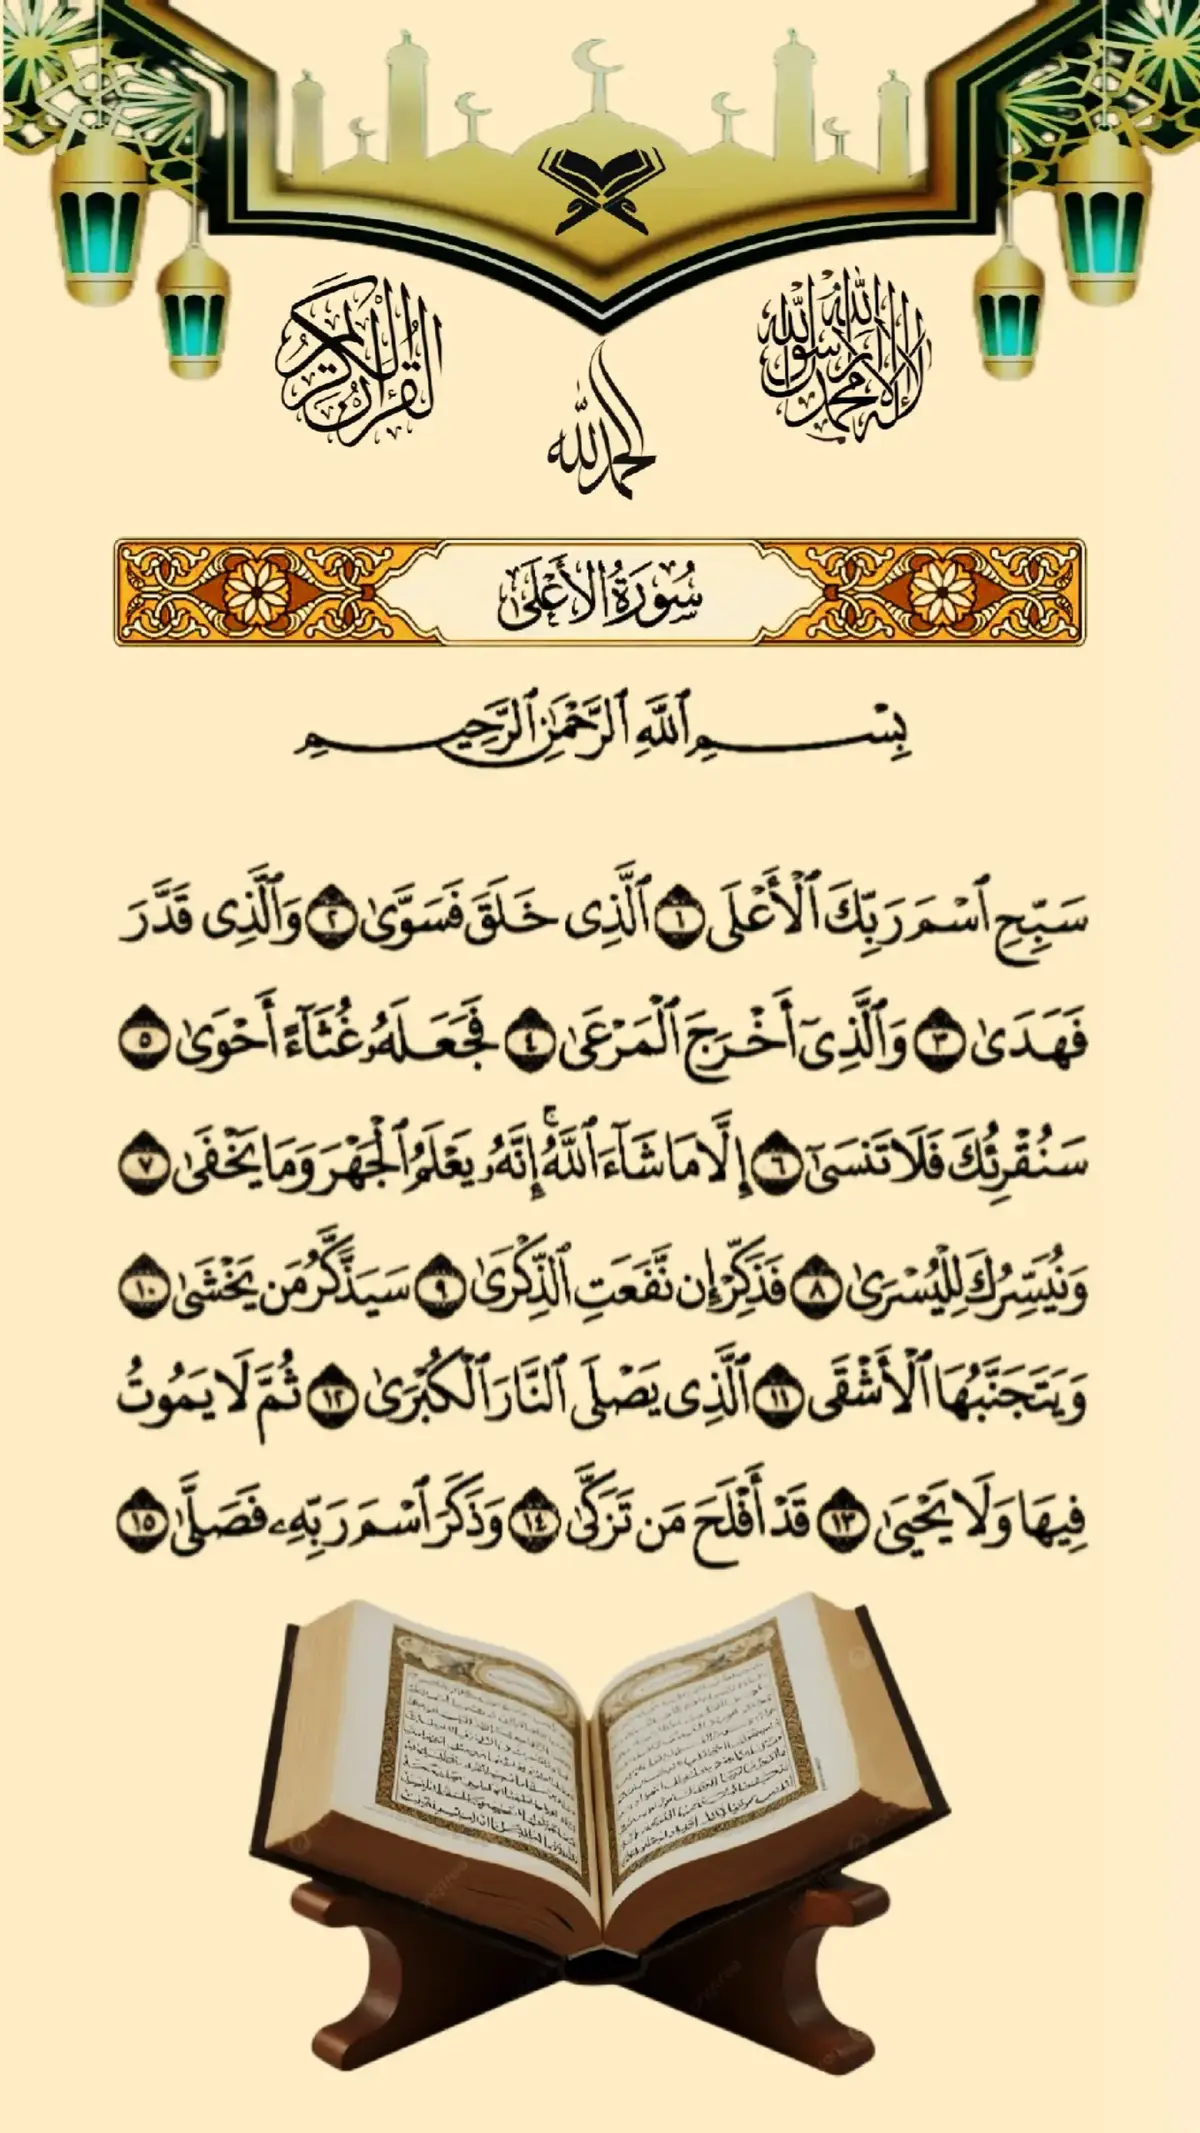 القرآن الكريم
لا إله إلا الله محمد رسول الله
الحمد لله
سُورَةُ الأَعْلَىٰ
بِسْمِ ٱللَّهِ ٱلرَّحْمَٰنِ ٱلرَّحِيمِ
سَبِّحِ ٱسْمَ رَبِّكَ ٱلْأَعْلَى ١ ٱلَّذِى خَلَقَ فَسَوَّىٰ ٢ وَٱلَّذِى قَدَّرَ
فَهَدَىٰ ٣ وَٱلَّذِىٓ أَخْرَجَ ٱلْمَرْعَىٰ ٤ فَجَعَلَهُۥ غُثَآءً أَحْوَىٰ ٥
سَنُقْرِئُكَ فَلَا تَنسَىٰٓ ٦ إِلَّا مَا شَآءَ ٱللَّهُ ۚ إِنَّهُۥ يَعْلَمُ ٱلْجَهْرَ وَمَا يَخْفَىٰ ٧
وَنُيَسِّرُكَ لِلْيُسْرَىٰ ٨ فَذَكِّرْ إِن نَّفَعَتِ ٱلذِّكْرَىٰ ٩ سَيَذَّكَّرُ مَن يَخْشَىٰ ١٠
وَيَتَجَنَّبُهَا ٱلْأَشْقَى ١١ ٱلَّذِى يَصْلَى ٱلنَّارَ ٱلْكُبْرَىٰ ١٢ ثُمَّ لَا يَمُوتُ
فِيهَا وَلَا يَحْيَىٰ ١٣ قَدْ أَفْلَحَ مَن تَزَكَّىٰ ١٤ وَذَكَرَ ٱسْمَ رَبِّهِۦ فَصَلَّىٰ ١٥